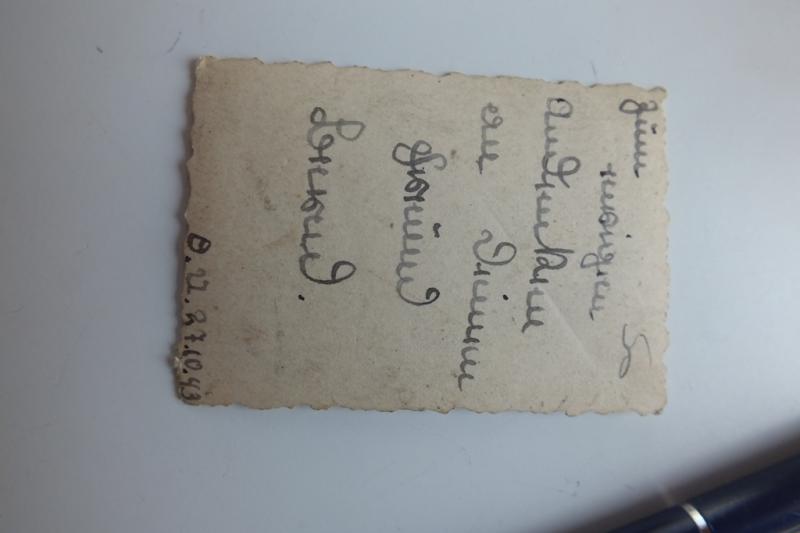 Zum
ewigen
Andenken
an Deinen
Freund
O.U. 27.10.43